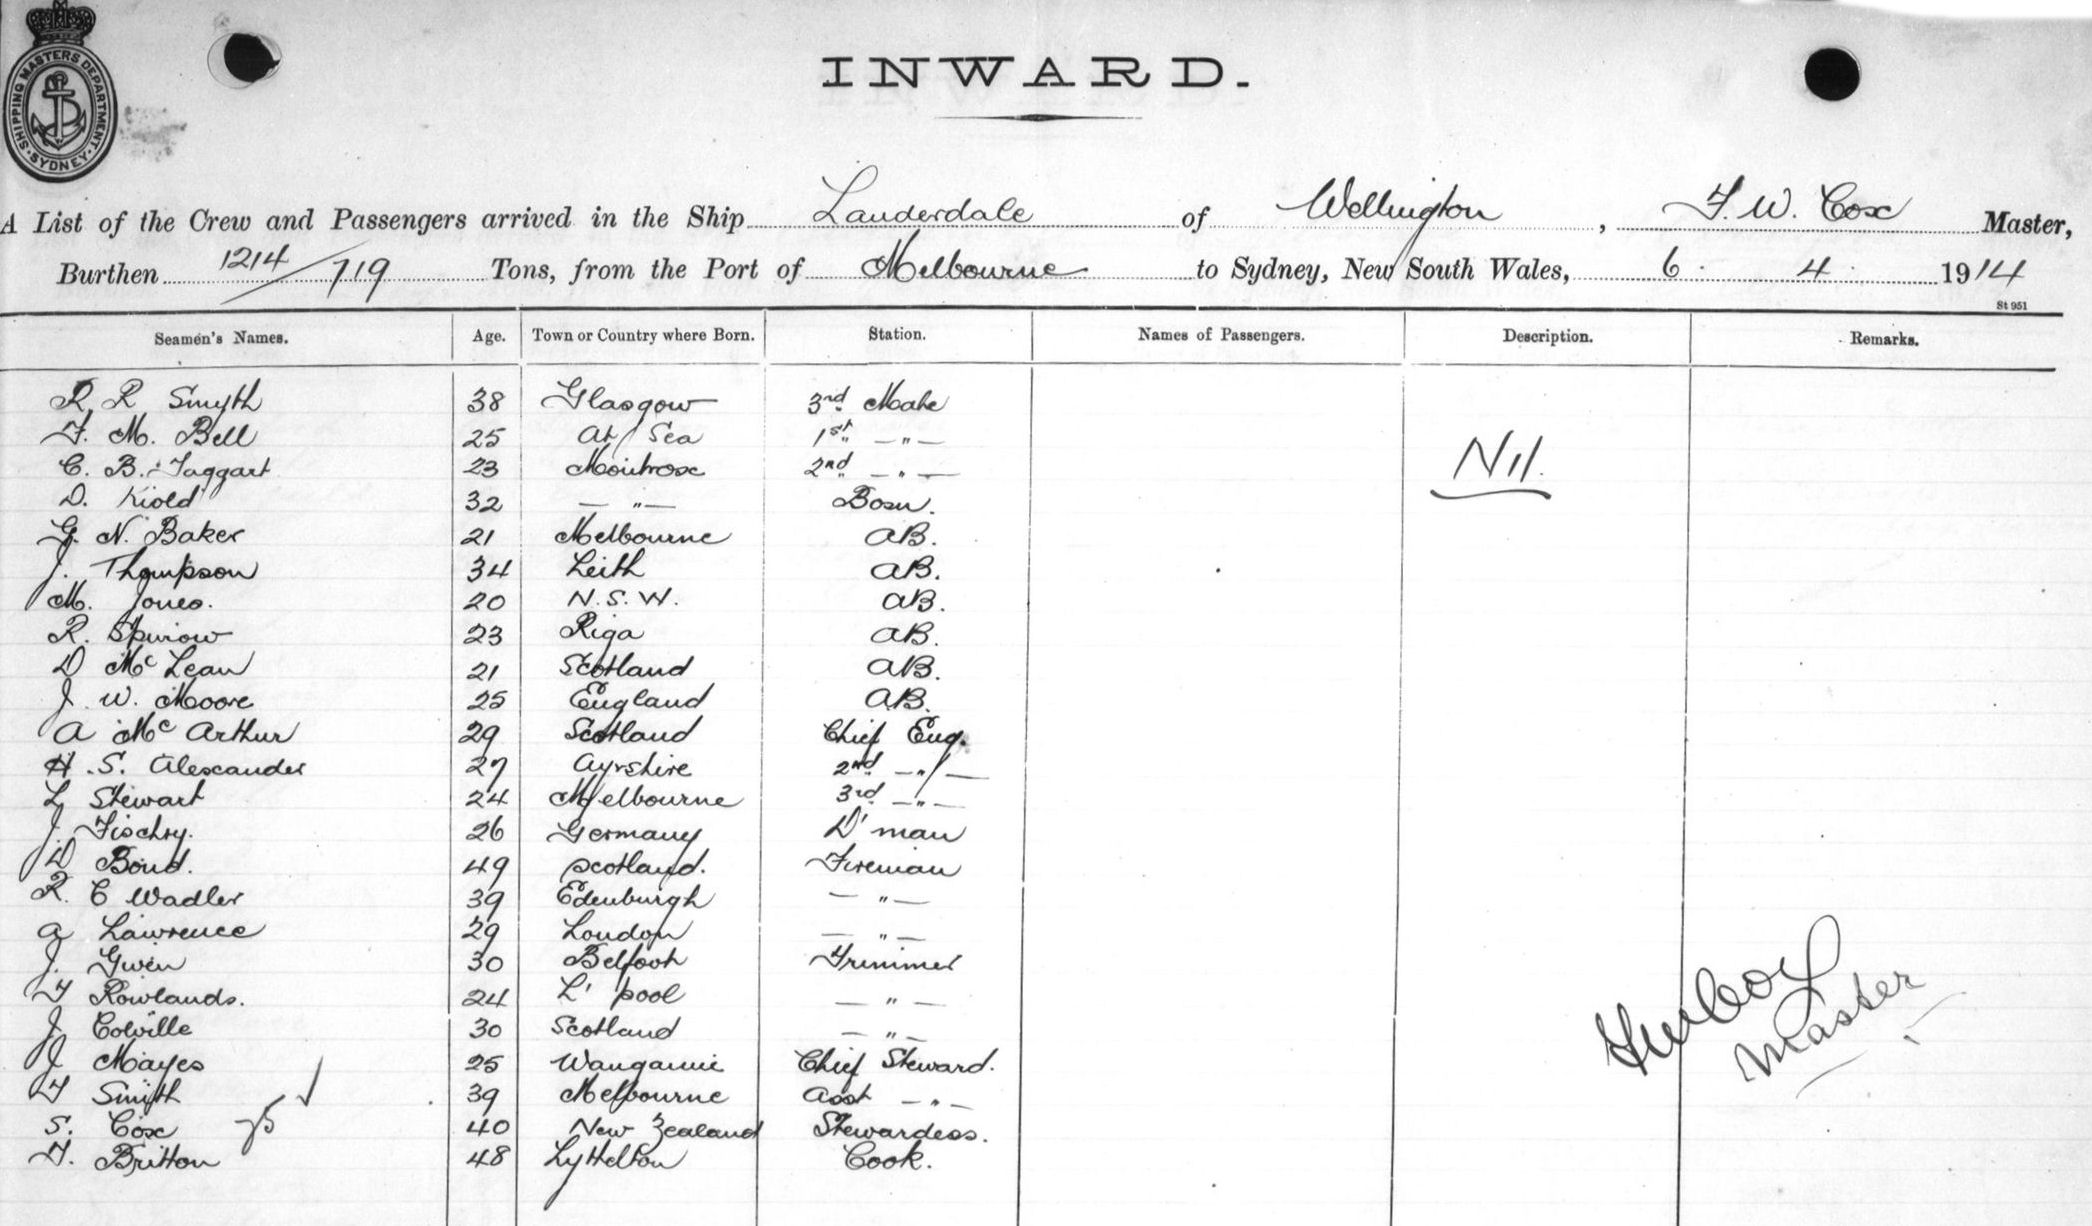 SHIPPING MASTERS DEPARTMENT. SYDNEY
INWARD.
A List of the Crew and Passengers arrived in the Ship Lauderdale of Wellington, F. W. Cox Master,
Burthen 1214/719 Tons, from the Port of Melbourne to Sydney, New South Wales, 6. 4. 1914
St 951
Seamen's Names. Age. Town or Country where Born. Station. Names of Passengers. Description. Remarks.
R R Smyth 38 Glasgow 3rd Mate
F. M. Bell 25 At Sea 1st —"—
C. B. Taggart 23 Montrose 2nd —"—
Nil.
D. Kiold 32 —"— Bosn.
G. N. Baker 21 Melbourne AB.
J. Thompson 34 Leith AB.
M. Jones. 20 N.S.W. AB.
R. 23 Riga AB.
D McLean 21 Scotland AB.
J. W. Moore 25 England AB.
A McArthur 29 Scotland Chief Eng.
H. S. Alexander 27 Ayrshire 2nd —"—
L Stewart 24 Melbourne 3rd —"—
J 26 Germany D'man
D Bond. 49 Scotland. Fireman
R. C Wadler 39 Edenburgh —"—
A Lawrence 29 London —"—
J. Gwen 30 Trimmer
T Rowlands. 24 L'pool —"—
J Colville 30 Scotland —"—
J Mayes 25 Wanganui Chief Steward.
T Smith 39 Melbourne Asst —"—
S. Cox 40 New Zealand Stewardess.
T. Britton 48 Lyttelton Cook.
FWCox
Master